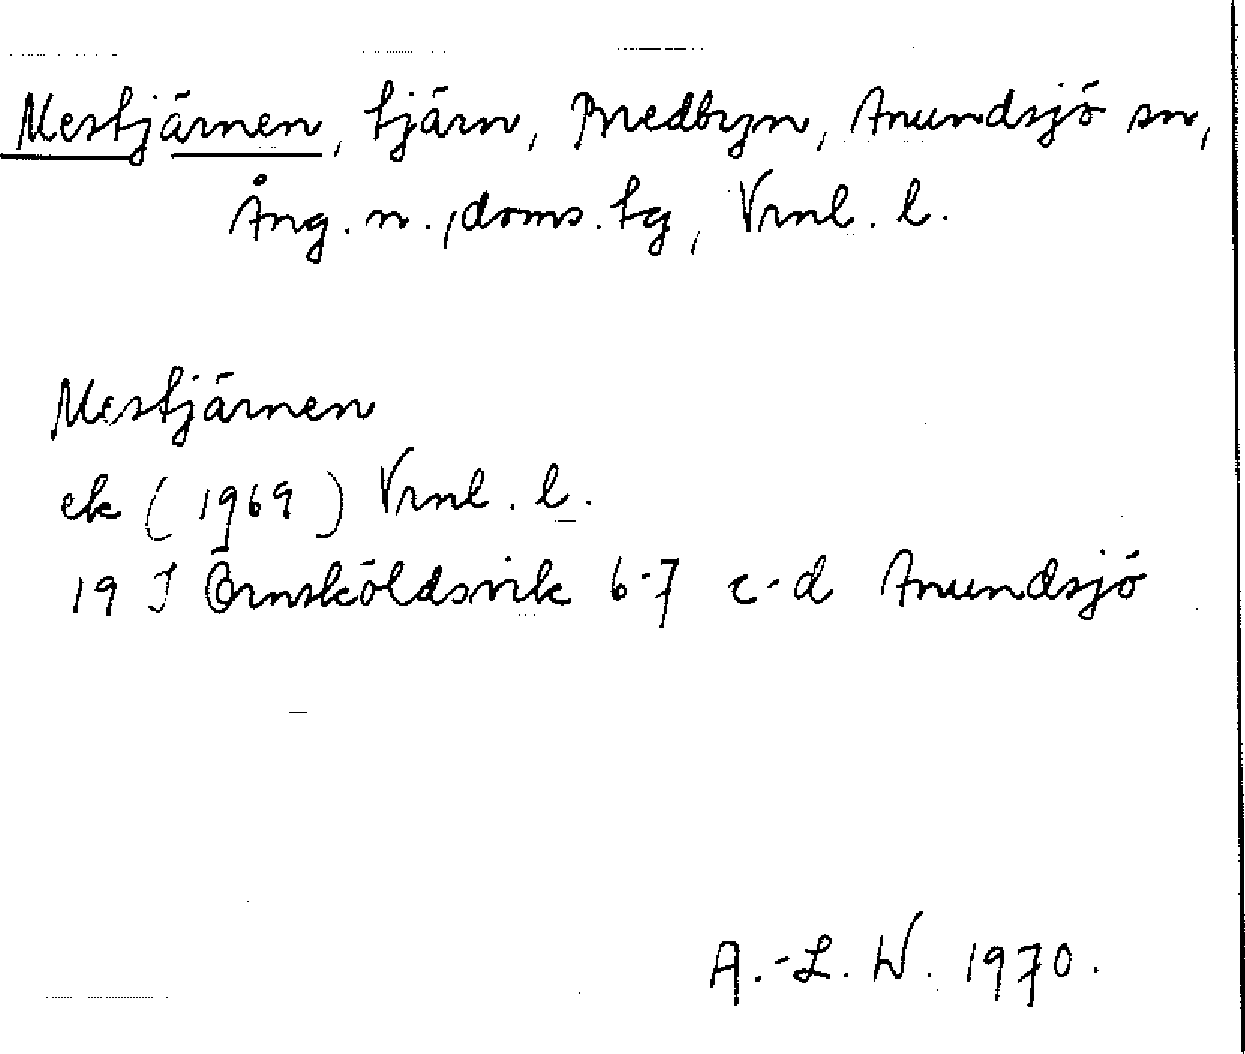 Mestjärnen, tjärn, Bredbyn, Anundsjö sn,
Ång. n., doms. tg, Vrnl. l.
Mestjärnen
ek (1969) Vrnl. l.
19 J Örnsköldsvik 6-7 c-d Anundsjö
A.-L. W. 1970.